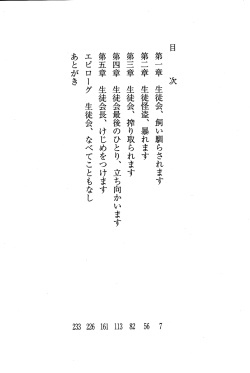 目次
第一章 生徒会、飼い馴らされます
第二章 生徒怪盗、暴れます
第三章 生徒会、搾り取られます
第四章 生徒会最後のひとり、立ち向かいます
第五章 生徒会長、けじめをつけます
エピローグ 生徒会、なべてこともなし
あとがき
7
56
82
113
161
226
233